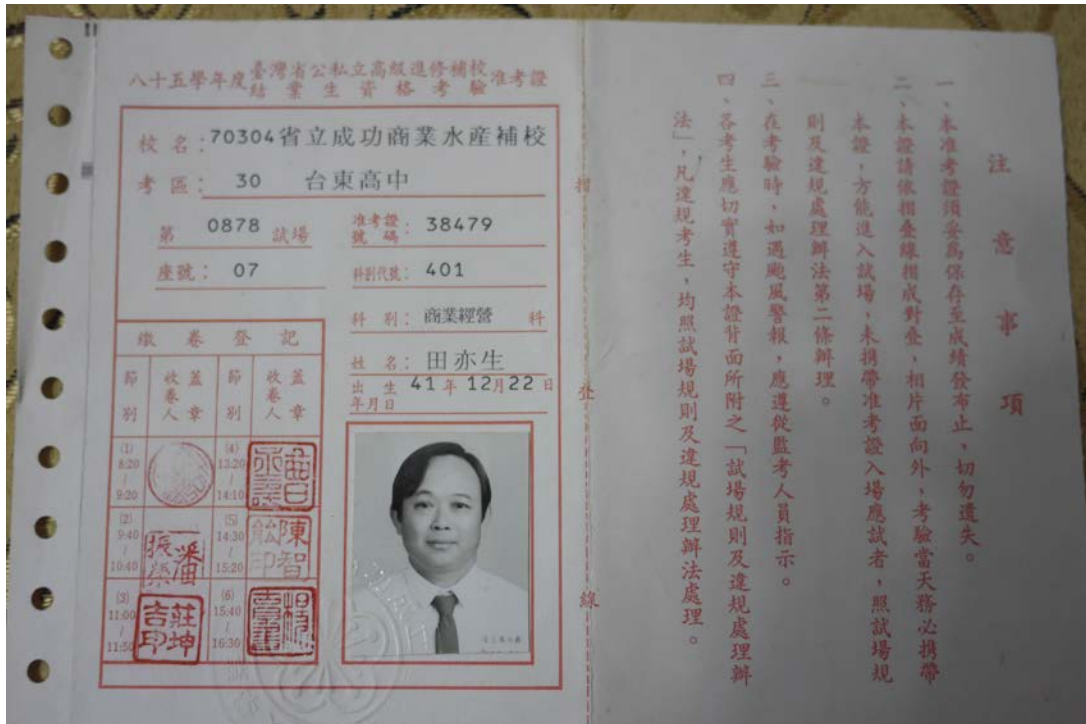 八十五學年度臺灣省公私立高級進修補校結業生資格考驗准考證
校名：70304省立成功商業水產補校
考區：30 台東高中
第 0878 試場
准考證號碼：38479
座號：07
科別代號：401
科別：商業經營 科
姓名：田亦生
出生年月日 41年12月22日
繳卷登記
節別 收卷人蓋章 節別 收卷人蓋章
(1) 8:20 | 9:20
(4) 13:20 | 14:10
(2) 9:40 | 10:40
(5) 14:30 | 15:20
陳智
(3) 11:00 | 11:50
莊坤吉印
(6) 15:40 | 16:30
摺
疊
線
注意事項
一、本准考證須妥為保存至成績發布止，切勿遺失。
二、本證請依摺疊線摺成對疊，相片面向外，考驗當天務必攜帶
本證，方能進入試場，未攜帶准考證入場應試者，照試場規
則及違規處理辦法第二條辦理。
三、在考驗時，如遇颱風警報，應遵從監考人員指示。
四、各考生應切實遵守本證背面所附之「試場規則及違規處理辦
法」，凡違規考生，均照試場規則及違規處理辦法處理。